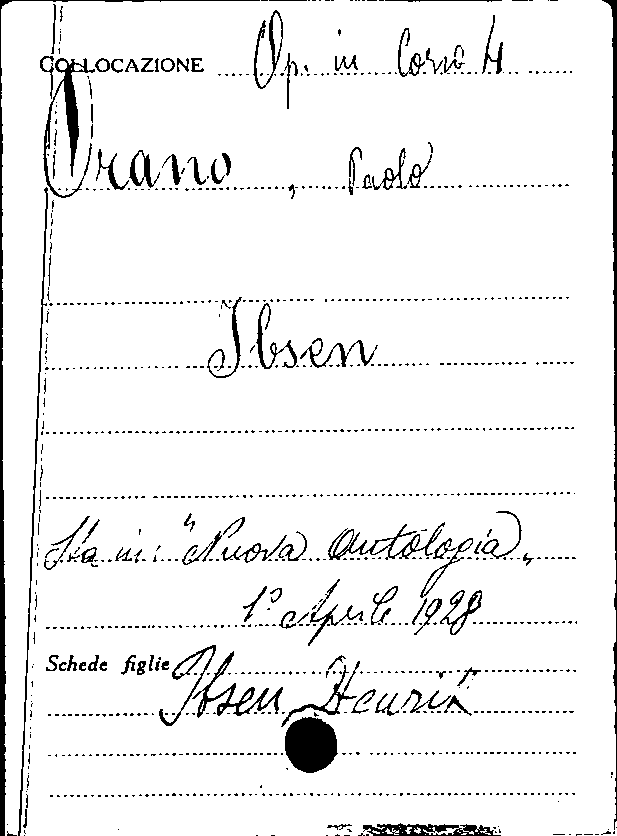 COLLOCAZIONE Op. in Corso 4
Orano, Paolo
Ibsen
Sta in: "Nuova Antologia"
1° Aprile 1928
Schede figlie Ibsen Henrik